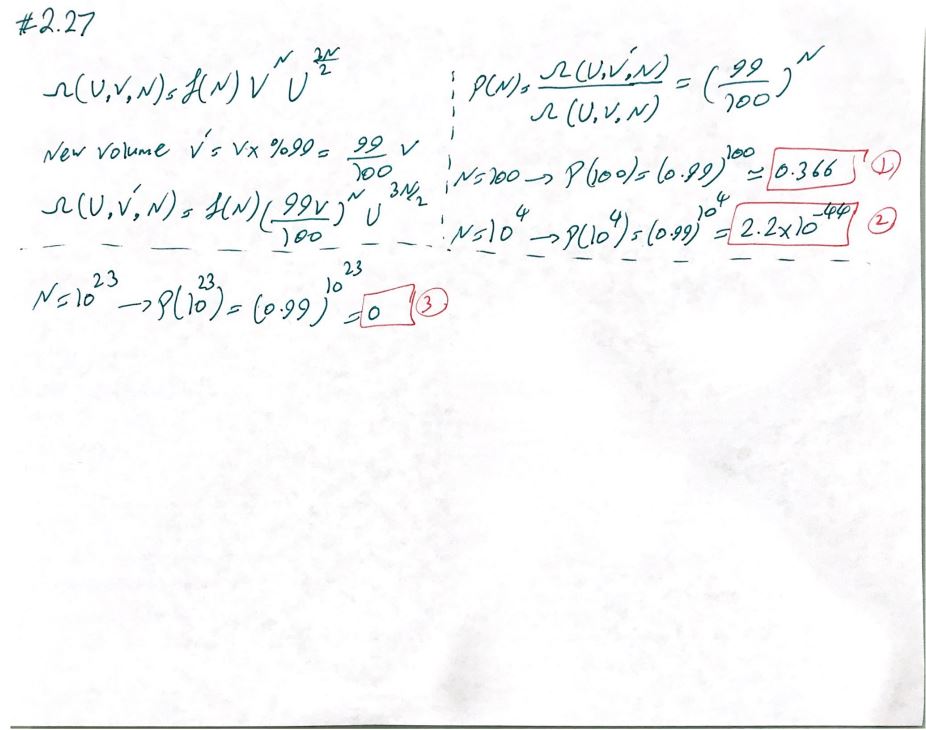 #2.27
Ω(U,V,N) = f(N) V^N U^{3N/2}
New volume V' = V x %99 = 99/100 V
Ω(U,V',N) = f(N) (99V/100)^N U^{3N/2}
P(N) = Ω(U,V',N) / Ω(U,V,N) = (99/100)^N
N=100 → P(100) = (0.99)^{100} ≃ 0.366 ①
N=10^4 → P(10^4) = (0.99)^{10^4} = 2.2x10^{-44} ②
N=10^{23} → P(10^{23}) = (0.99)^{10^{23}} = 0 ③